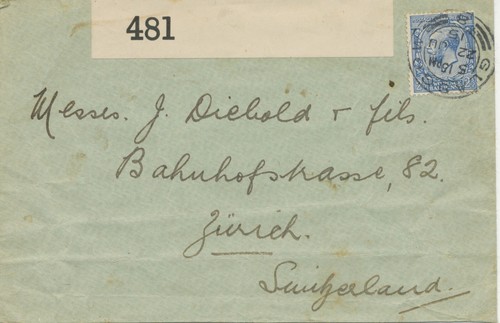 481
Messes. J. Diebold + fils.
Bahnhofstrasse, 82.
Zürich.
Switzerland.